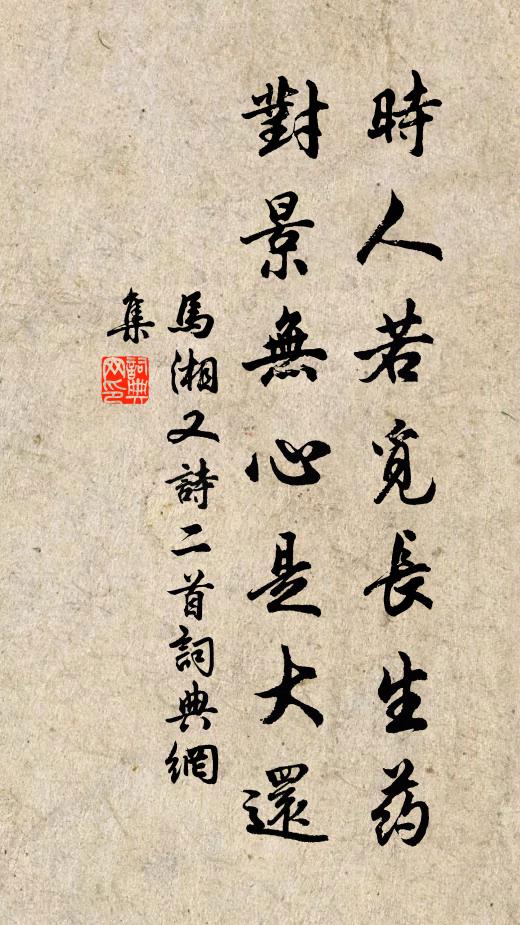 時人若覓長生药
對景無心是大還
馬湘又詩二首詞典網
集
詞典
网印